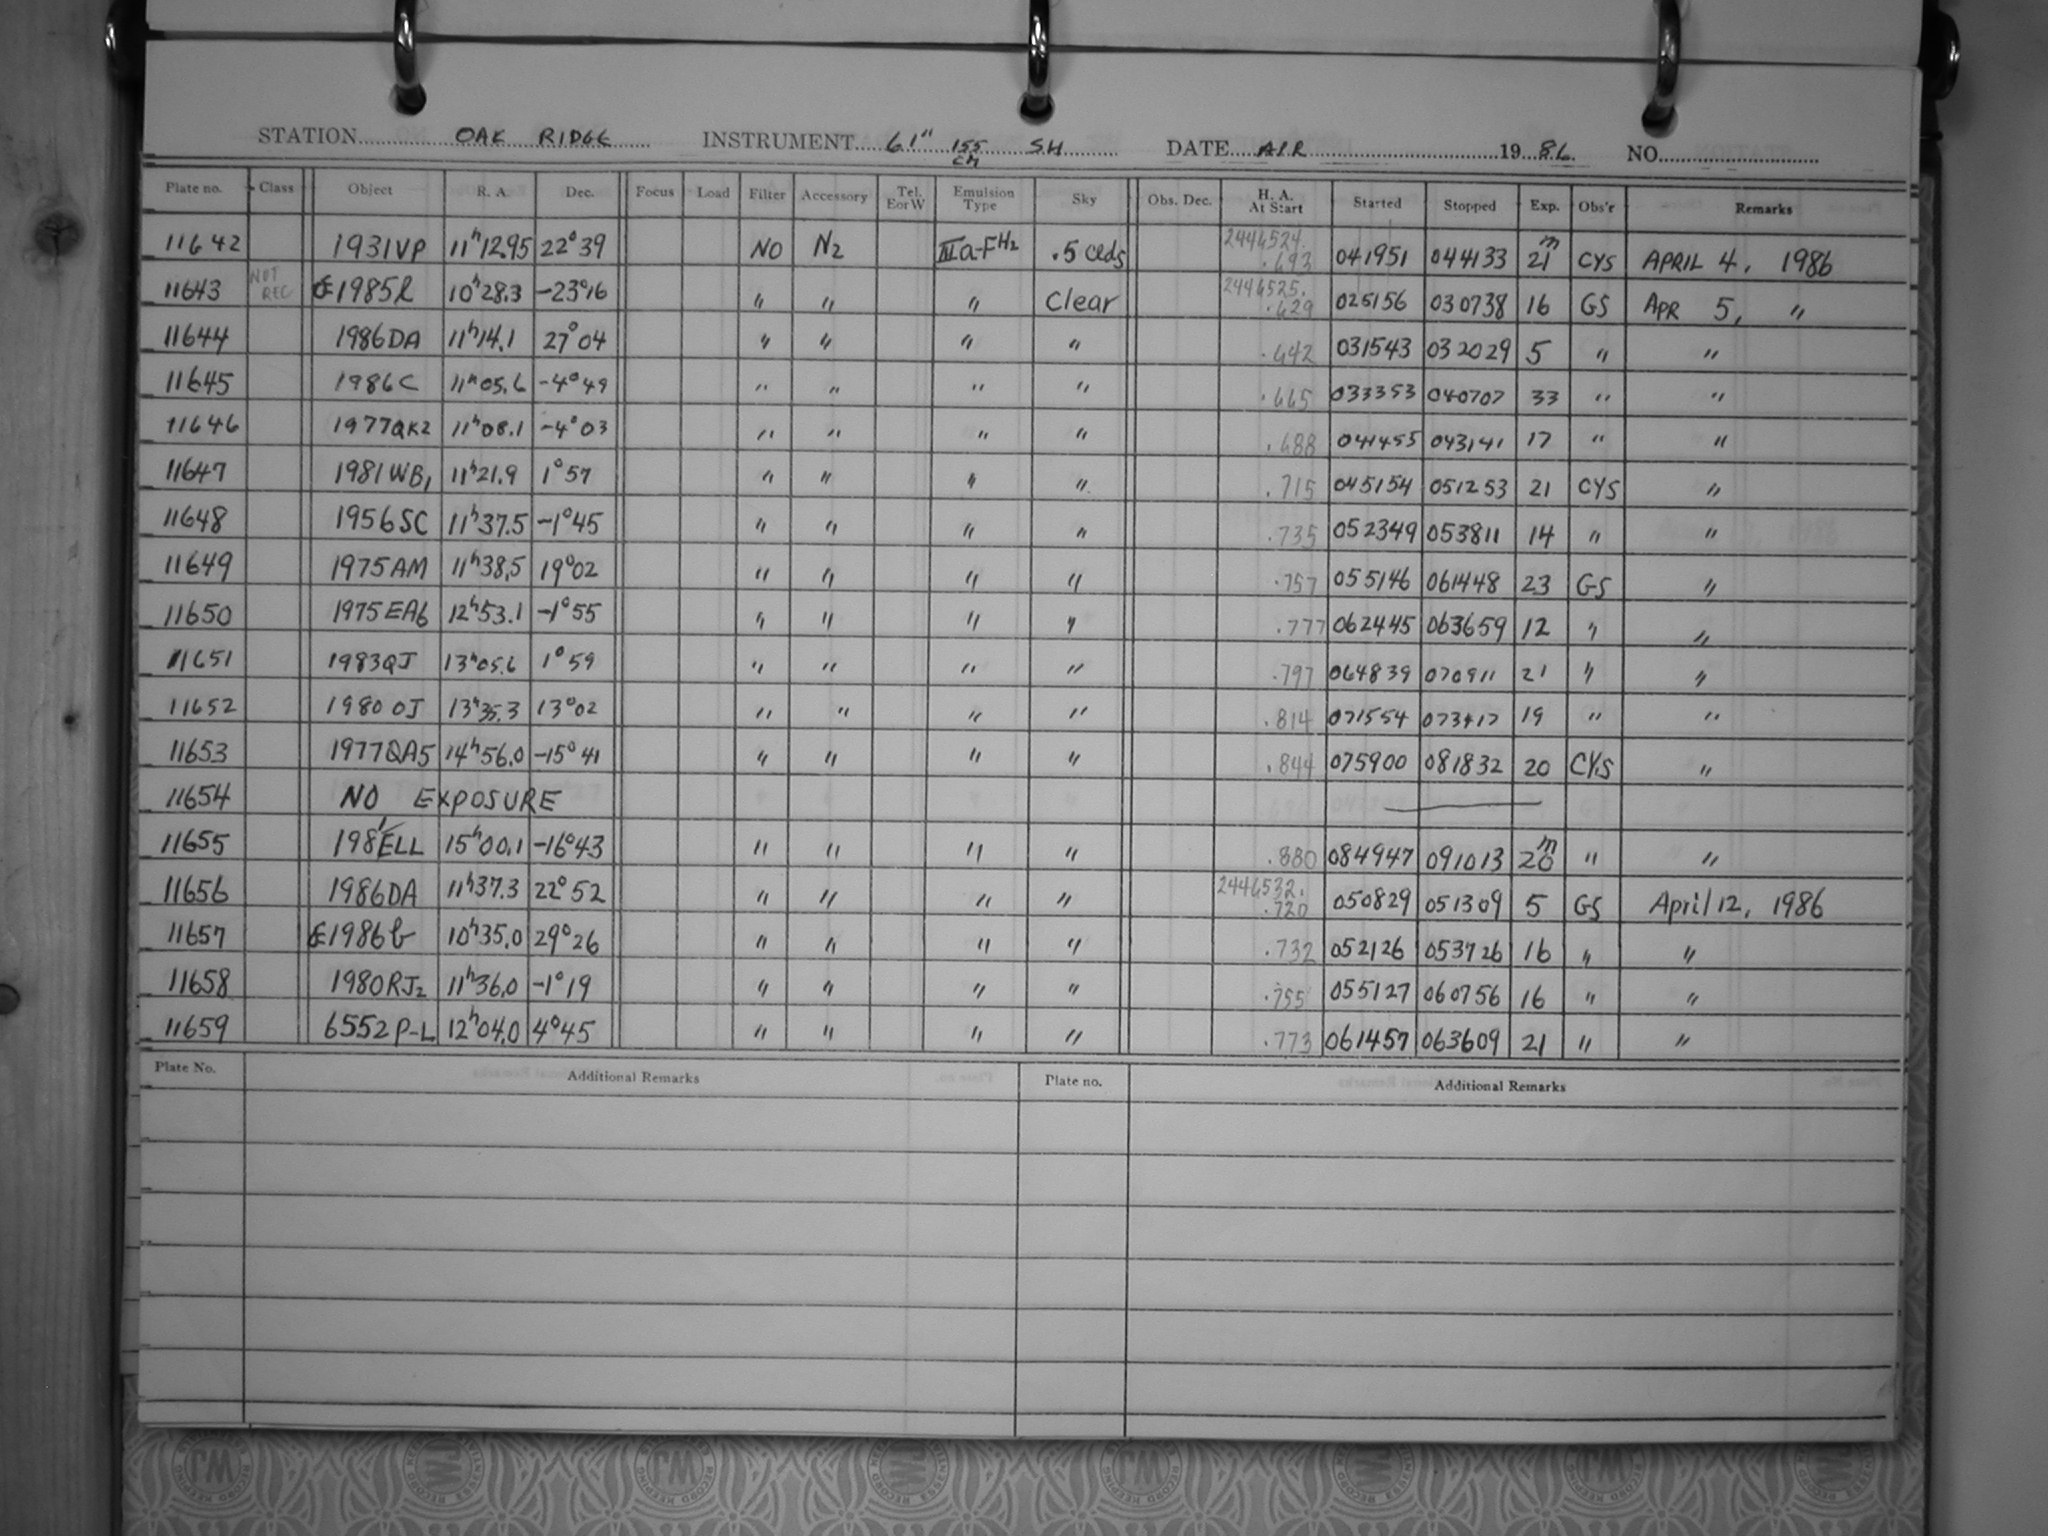 STATION OAK RIDGE INSTRUMENT 61" 155 CM SH DATE APR 1986. NO.
Plate no. Class Object R. A. Dec. Focus Load Filter Accessory Tel. E or W Emulsion Type Sky Obs. Dec. H. A. At Start Started Stopped Exp. Obs'r Remarks
11642 1931VP 11h12.95 22° 39 NO N2 IIIa-F H2 .5 clds 2446524. .693 041951 044133 21m CYS APRIL 4, 1986
11643 NOT REC 1985l 10h28.3 -23°16 " " " Clear 2446525. .629 025156 030738 16 GS APR 5, "
11644 1986DA 11h14.1 27° 04 " " " " .642 031543 032029 5 " "
11645 1986C 11h05.6 -4°49 " " " " .665 033353 040707 33 " "
11646 1977QK2 11h08.1 -4°03 " " " " .688 041455 043141 17 " "
11647 1981WB1 11h21.9 1°57 " " " " .715 045154 051253 21 CYS "
11648 1956SC 11h37.5 -1°45 " " " " .735 052349 053811 14 " "
11649 1975AM 11h38.5 19°02 " " " " .757 055146 061448 23 GS "
11650 1975EA6 12h53.1 -1°55 " " " " .777 062445 063659 12 " "
11651 1983QJ 13h05.6 1°59 " " " " .797 064839 070911 21 " "
11652 1980 OJ 13h35.3 13°02 " " " " .814 071554 073417 19 " "
11653 1977QA5 14h56.0 -15°41 " " " " .844 075900 081832 20 CYS "
11654 NO EXPOSURE
11655 1981ELL 15h00.1 -16°43 " " " " .880 084947 091013 20m " "
11656 1986DA 11h37.3 22° 52 " " " " 2446532. .720 050829 051309 5 GS April 12, 1986
11657 1986b 10h35.0 29°26 " " " " .732 052126 053726 16 " "
11658 1980RJ2 11h36.0 -1°19 " " " " .755 055127 060756 16 " "
11659 6552P-L 12h04.0 4°45 " " " " .773 061457 063609 21 " "
Plate No. Additional Remarks Plate no. Additional Remarks